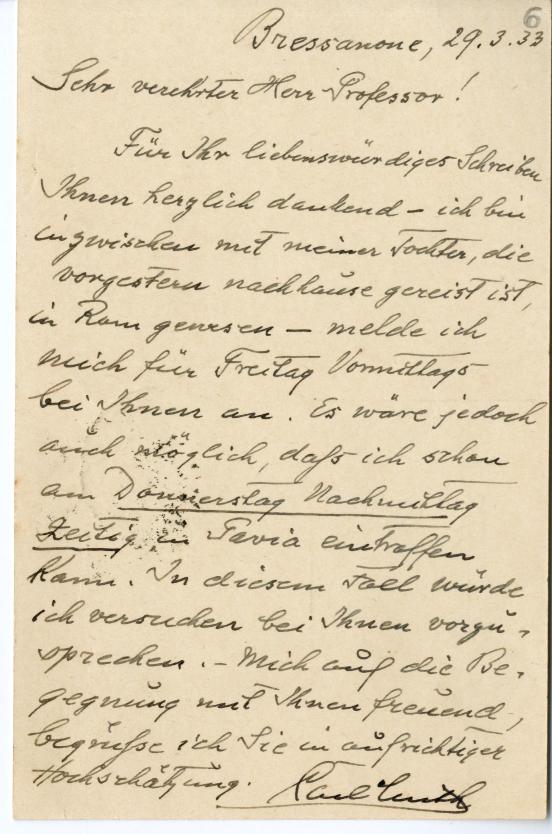 6
Bressanone, 29.3.33
Sehr verehrter Herr Professor!
Für Ihr liebenswürdiges Schreiben
Ihnen herzlich dankend – ich bin
inzwischen mit meiner Tochter, die
vorgestern nachhause gereist ist,
in Rom gewesen – melde ich
mich für Freitag Vormittags
bei Ihnen an. Es wäre jedoch
auch möglich, daß ich schon
am Donnerstag Nachmittag
zeitig in Pavia eintreffen
kann. In diesem Fall würde
ich versuchen bei Ihnen vorzu-
sprechen. – Mich auf die Be-
gegnung mit Ihnen freuend,
begrüße ich Sie in aufrichtiger
Hochschätzung.